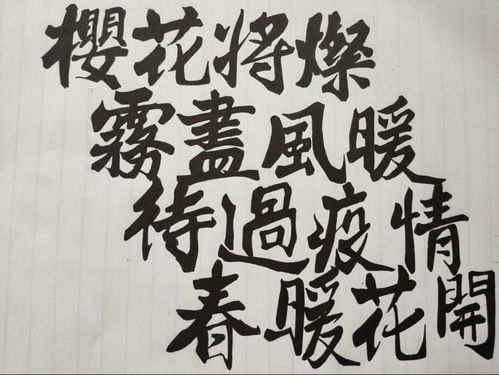 櫻花将燦
霧盡風暖
待過疫情
春暖花開